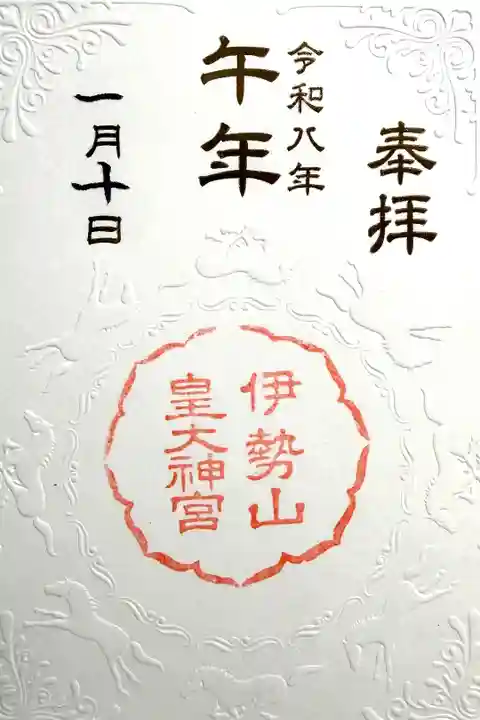 奉拝
令和八年
午年
一月十日
伊勢山
皇大神宮